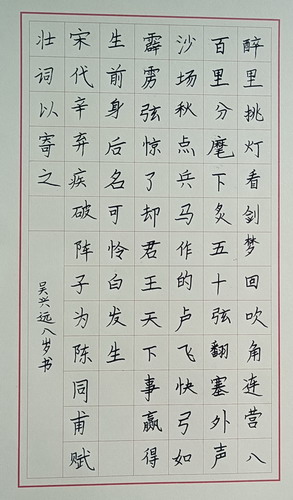 醉里挑灯看剑梦回吹角连营八
百里分麾下炙五十弦翻塞外声
沙场秋点兵马作的卢飞快弓如
霹雳弦惊了却君王天下事赢得
生前身后名可怜白发生
宋代辛弃疾破阵子为陈同甫赋
壮词以寄之
吴兴远八岁书